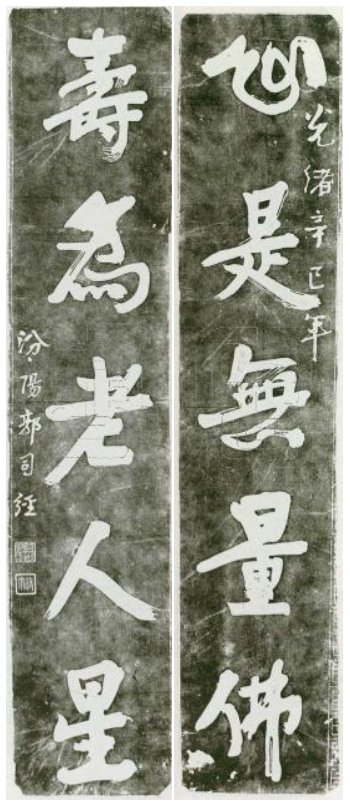 光緒辛巳年
心是無量佛
壽為老人星
汾陽郭司經